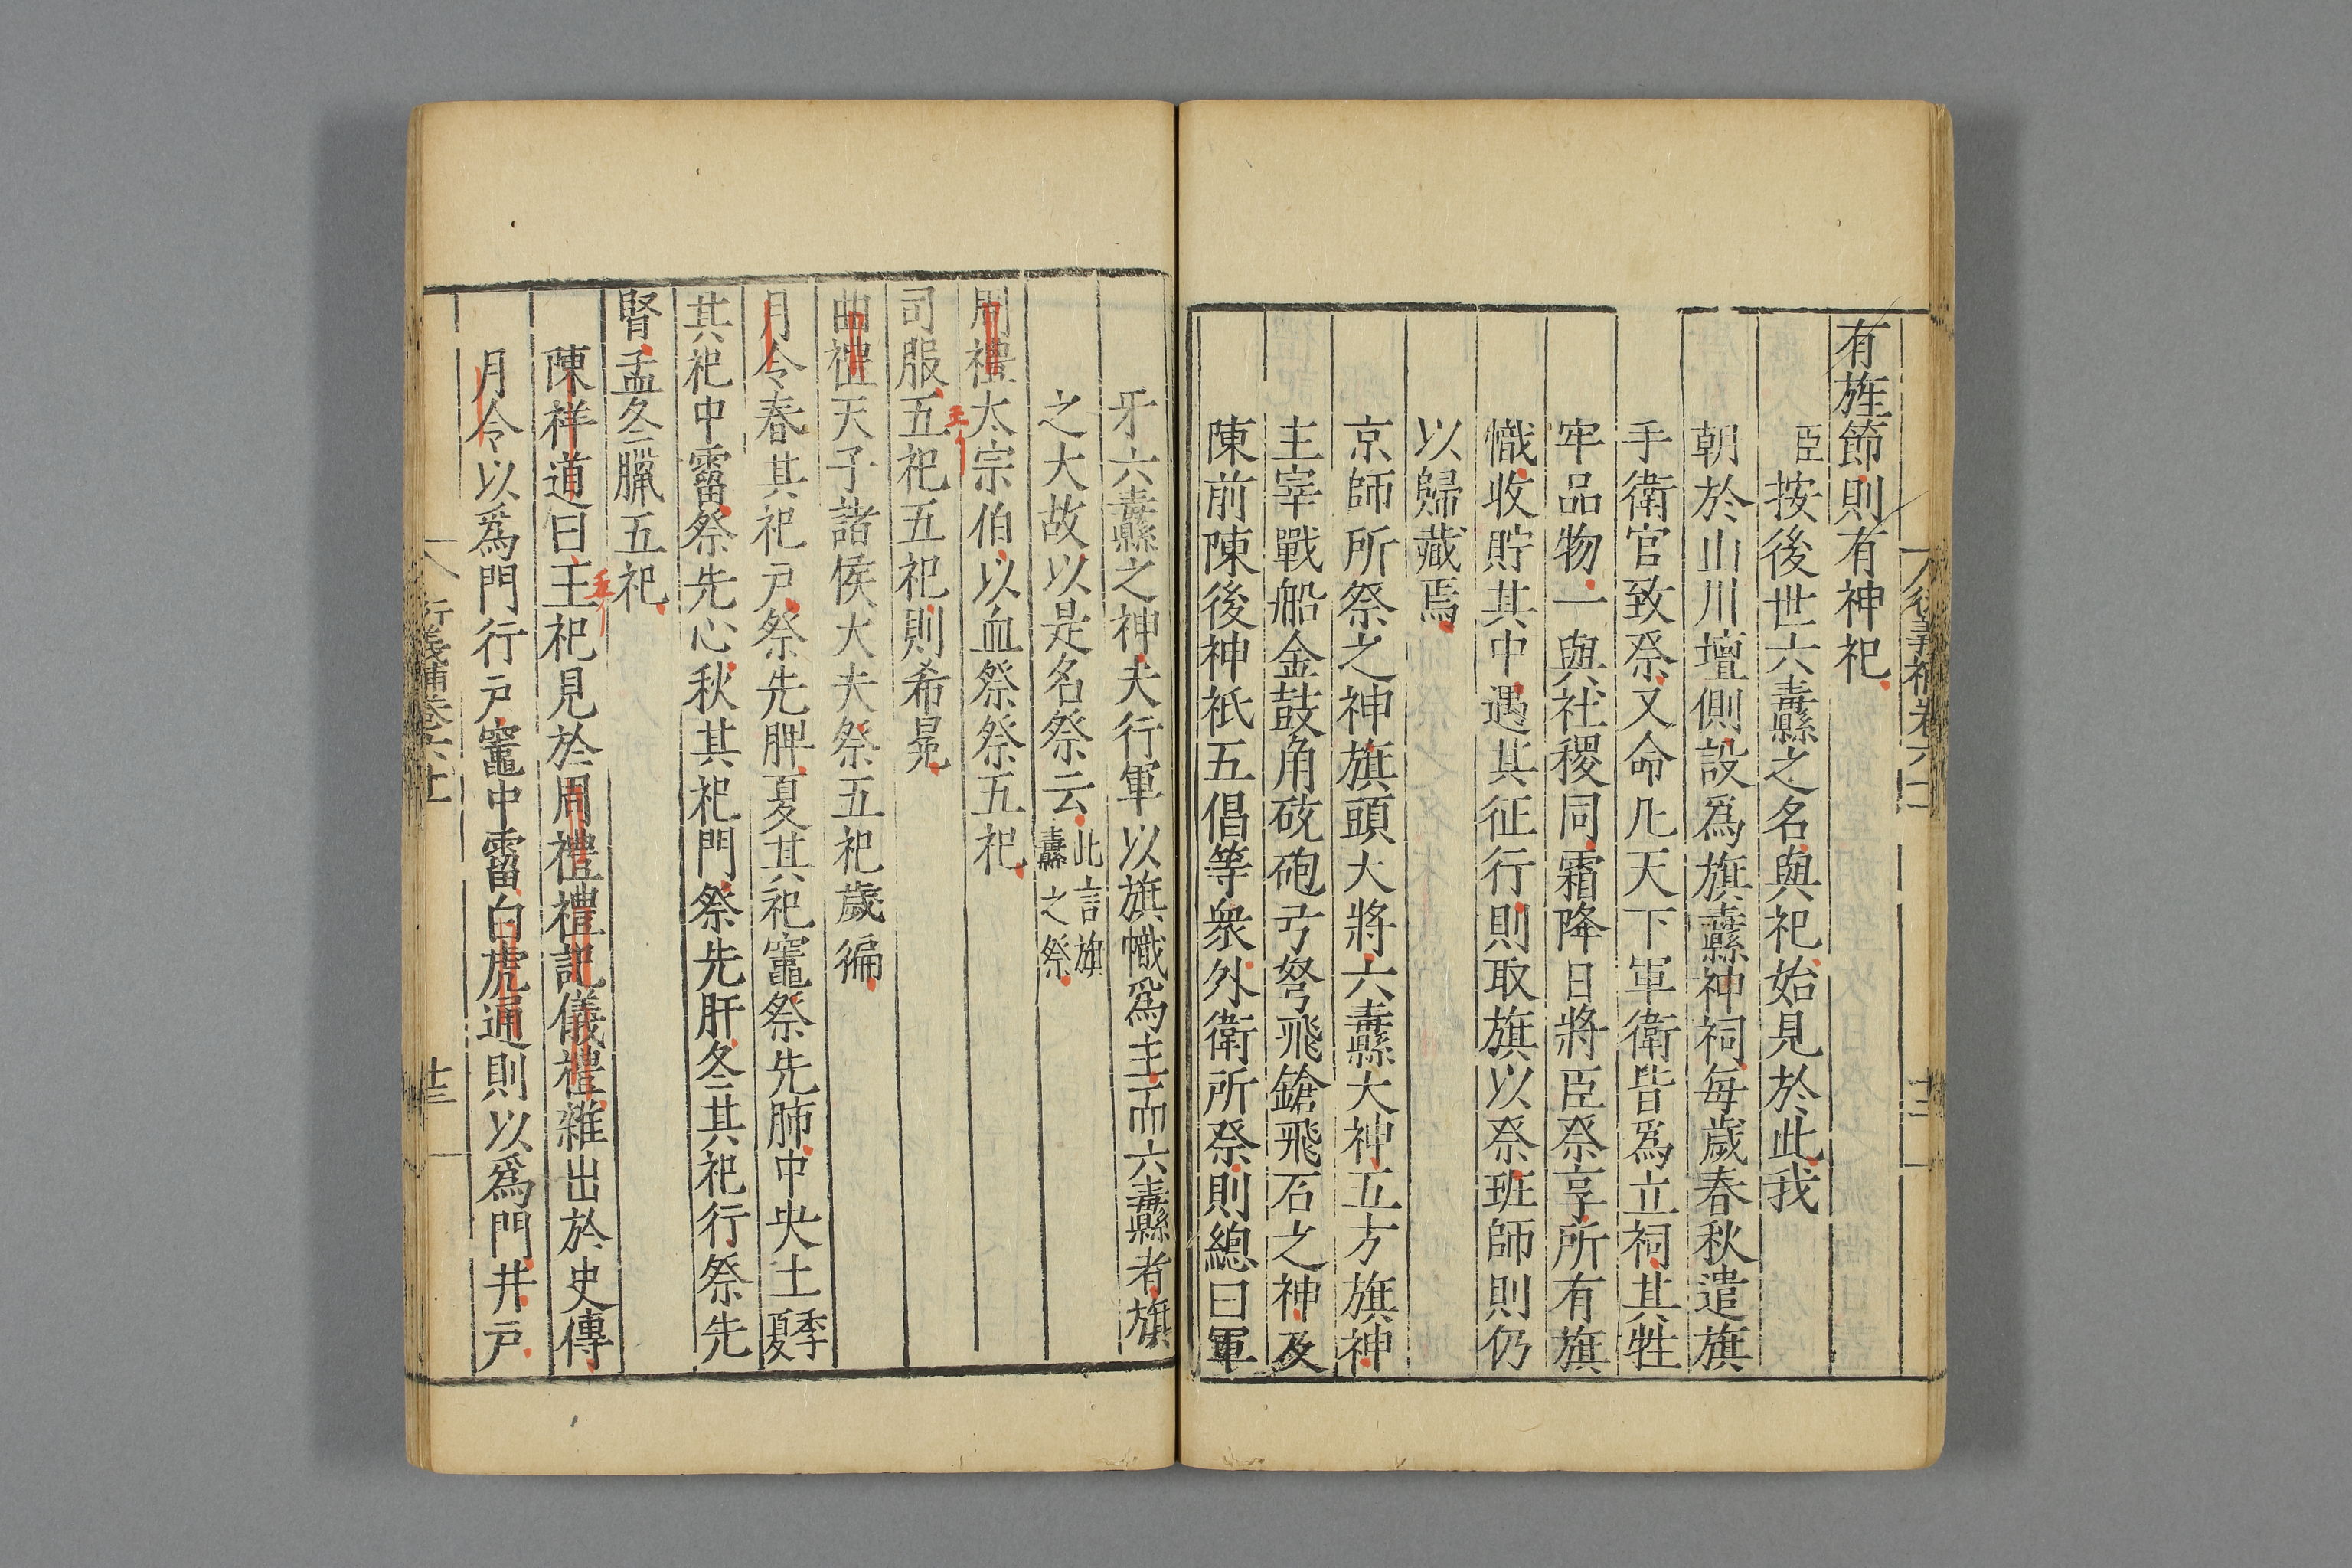 衍義補卷六十一
十二
有旌節則有神祀
臣按後世六纛之名與祀始見於此我
朝於山川壇側設爲旗纛神祠每歲春秋遣旗
手衛官致祭又命凢天下軍衛皆爲立祠其牲
牢品物一與社稷同霜降日將臣祭享所有旗
幟收貯其中遇其征行則取旗以祭班師則仍
以歸藏焉
京師所祭之神旗頭大將六纛大神五方旗神
主宰戰船金鼓角砲砲弓弩飛鎗飛石之神及
陳前陳後神祇五倡等衆外衛所祭則緫曰軍
牙六纛之神夫行軍以旗幟爲主而六纛者旗
之大故以是名祭云此言旗纛之祭
周禮太宗伯以血祭祭五祀
司服王五祀五祀則希冕
曲禮天子諸侯大夫祭五祀歲徧
月令春其祀戸祭先脾夏其祀竈祭先肺中央土季夏
其祀中霤祭先心秋其祀門祭先肝冬其祀行祭先
腎孟冬臘五祀
陳祥道曰王五祀見於周禮禮記儀禮雜出於史傳
月令以爲門行戸竈中霤白虎通則以爲門井戸
衍義補卷六十一
十三